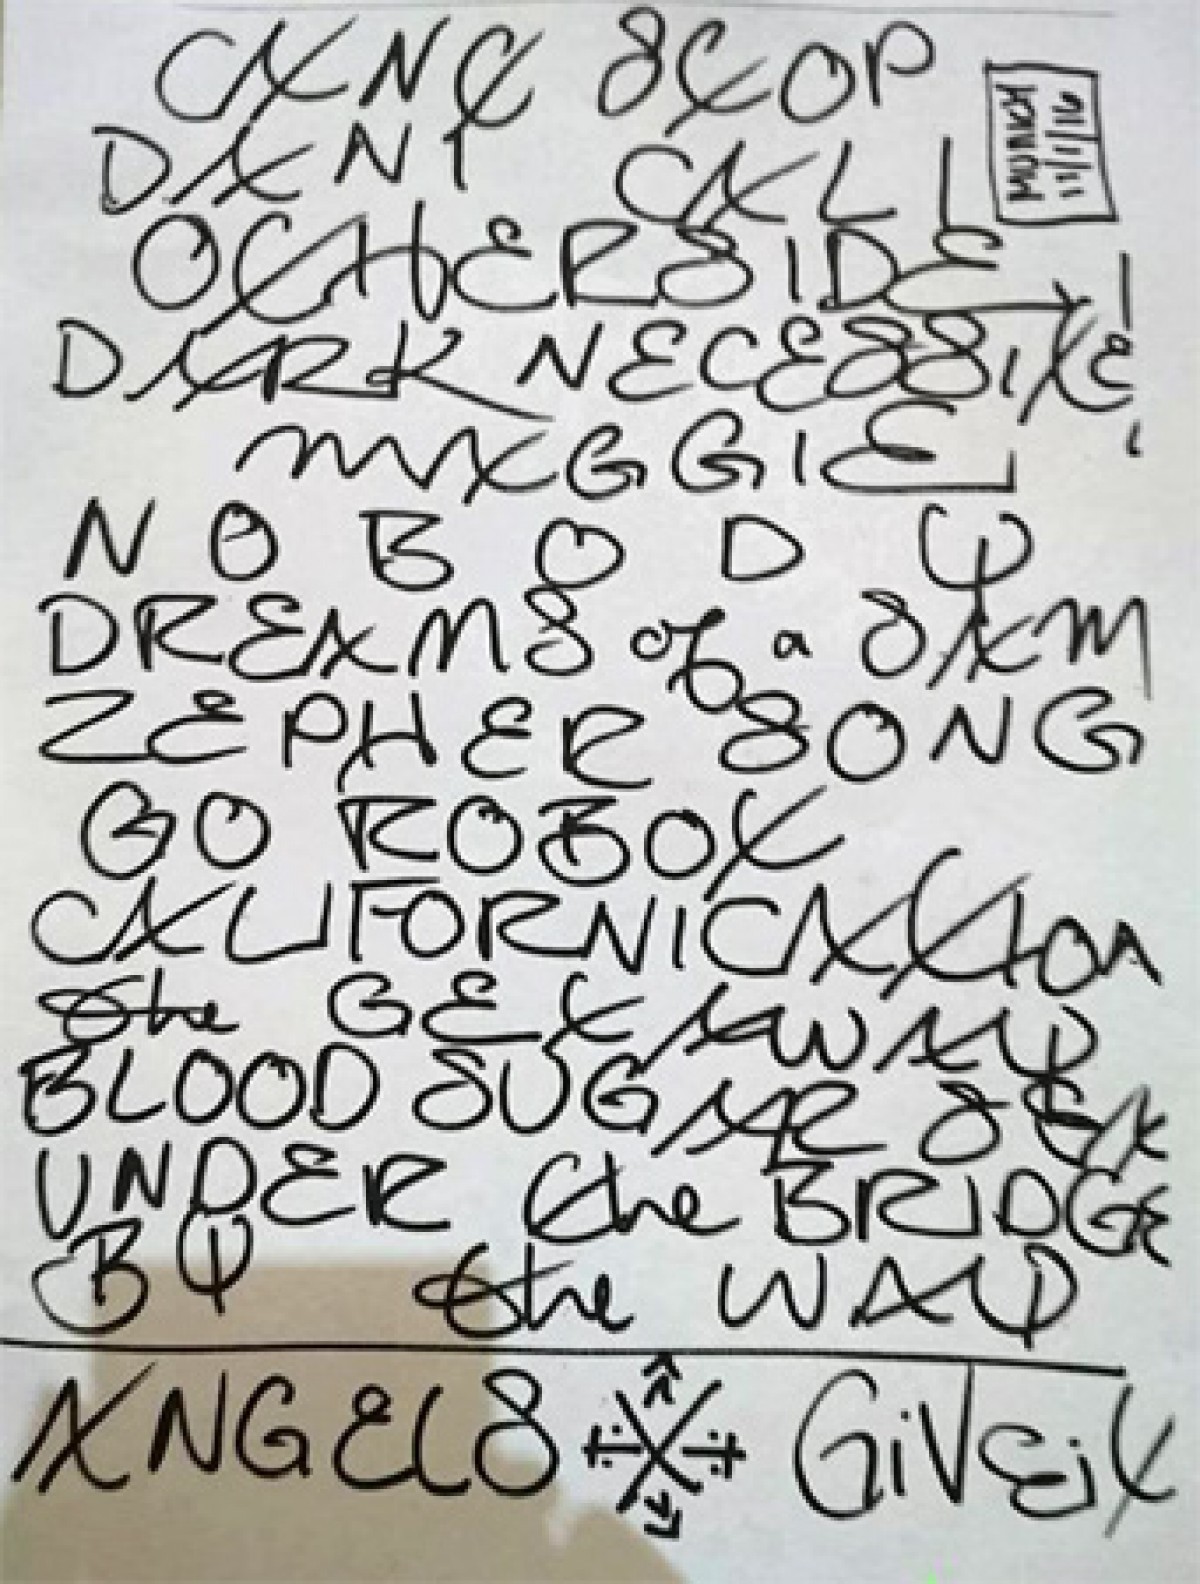 CANT STOP
MUNICH 11/1/16
DANI CALL
OTHERSIDE
DARK NECESSITIE
MAGGIE
NOBODY
DREAMS of a SAM
ZEPHER SONG
GO ROBOT
CALIFORNICATION
the GET AWAY
BLOOD SUGAR SEX
UNDER the BRIDGE
BY the WAY
ANGELS GiVE it